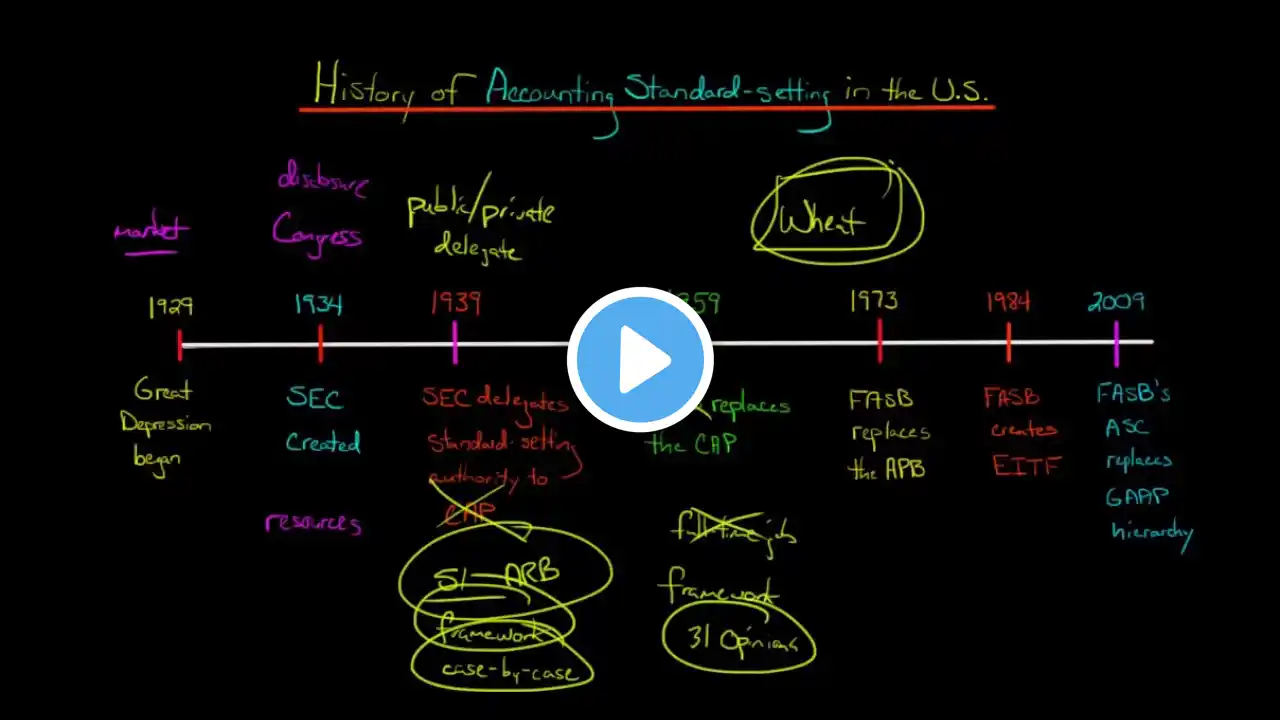 History of Accounting Standard-setting in the U.S.
disclosure
market
Congress
public/private
delegate
Wheat
1929
1934
1939
959
1973
1984
2009
Great
Depression
began
SEC
Created
SEC delegates
standard-setting
authority to
CAP
replaces
the CAP
FASB
replaces
the APB
FASB
creates
EITF
FASB's
ASC
replaces
GAAP
hierarchy
resources
51 ARB
framework
case-by-case
full-time job
framework
31 Opinions